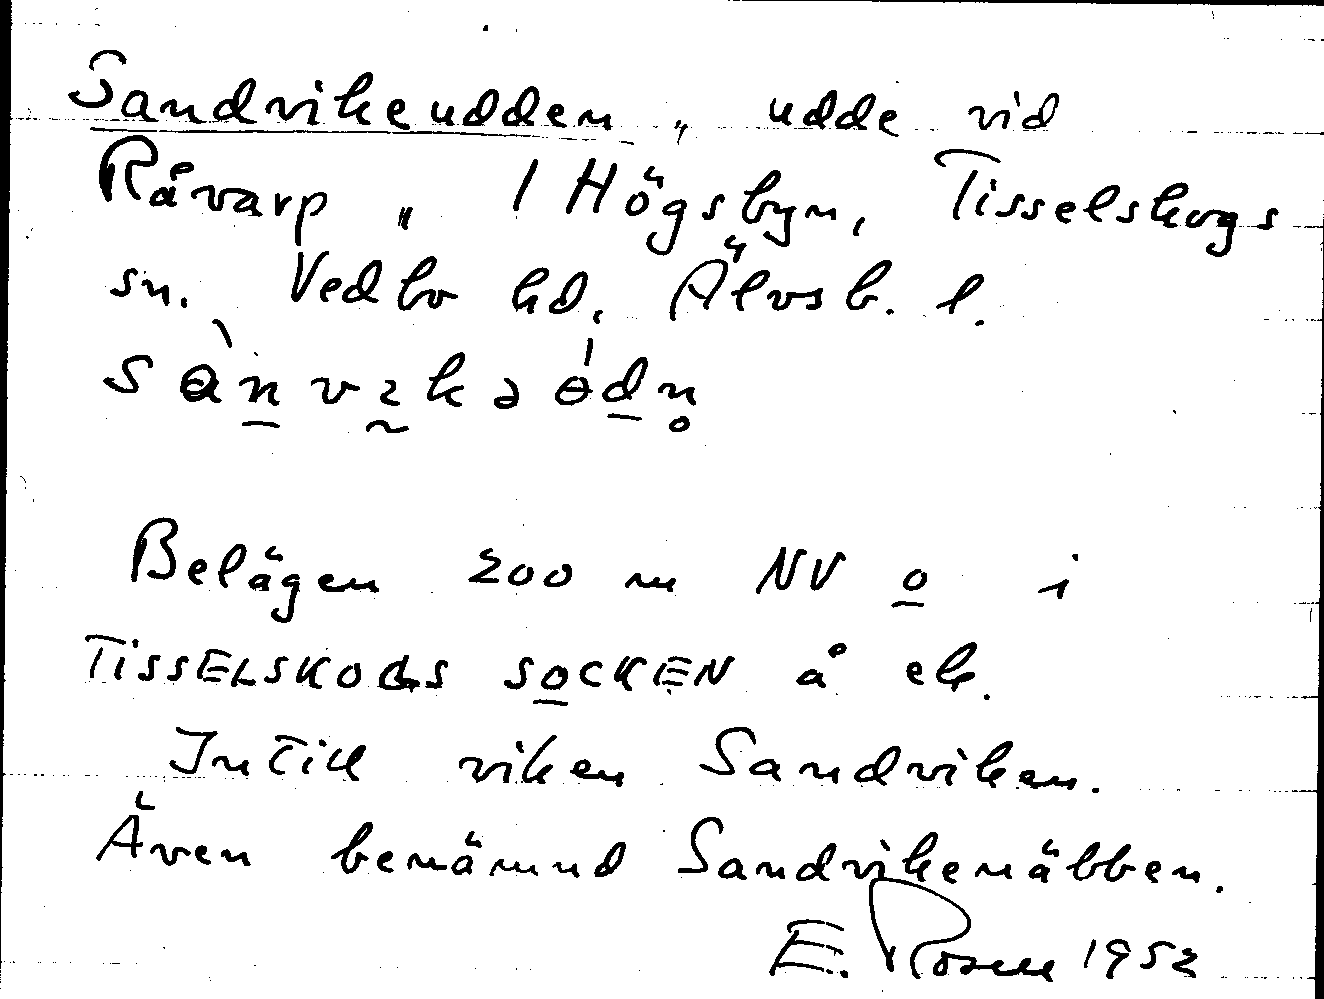 Sandvikeudden „ udde vid
Råvarp „ 1 Högsbyn, Tisselskogs
sn. Vedbo hd, Älvsb. l.
sànvɩkəɵ́dn̥
Belägen 200 m NV o i
TISSELSKOGS SOCKEN å ek.
Intill viken Sandviken.
Även benämnd Sandvikenäbben.
E. Rosell 1952